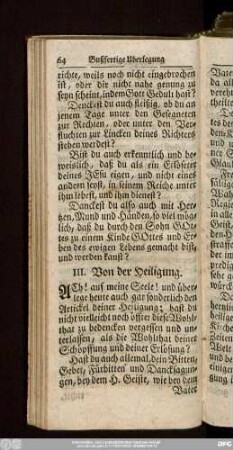 64 Bußfertige Uberlegung
richte, weils noch nicht eingebrochen
ist, oder dir nicht nahe genung zu
seyn scheint, indem Gott Gedult hast?
Denckest du auch fleißig, ob du an
jenem Tage unter den Gesegneten
zur Rechten, oder unter den Ver-
fluchten zur Lincken deines Richters
stehen werdest?
Bist du auch erkenntlich und be-
weißlich, daß du als ein Erlöseter
deines JEsu eigen, und nicht eines
andern seyst, in seinem Reiche unter
ihm lebest, und ihm dienest?
Danckest du also auch mit Her-
tzen, Mund und Händen, so viel mög-
lich, daß du durch den Sohn GOt-
tes zu einem Kinde GOttes und Er-
ben des ewigen Lebens gemacht bist,
und werden kanst?
III. Von der Heiligung.
ACh! auf meine Seele! und über-
lege heute auch gar sonderlich den
Artickel deiner Heiligung; hast du
nicht vielleicht noch öffter diese Wohl-
that zu bedencken vergessen und un-
terlassen, als die Wohlthat deines
Schöpffung und deiner Erlösung?
Hast du auch allemal, dein Bitten,
Gebet, Fürbitten und Dancksagun-
gen, bey dem H. Geiste, wie bey dem
Vater